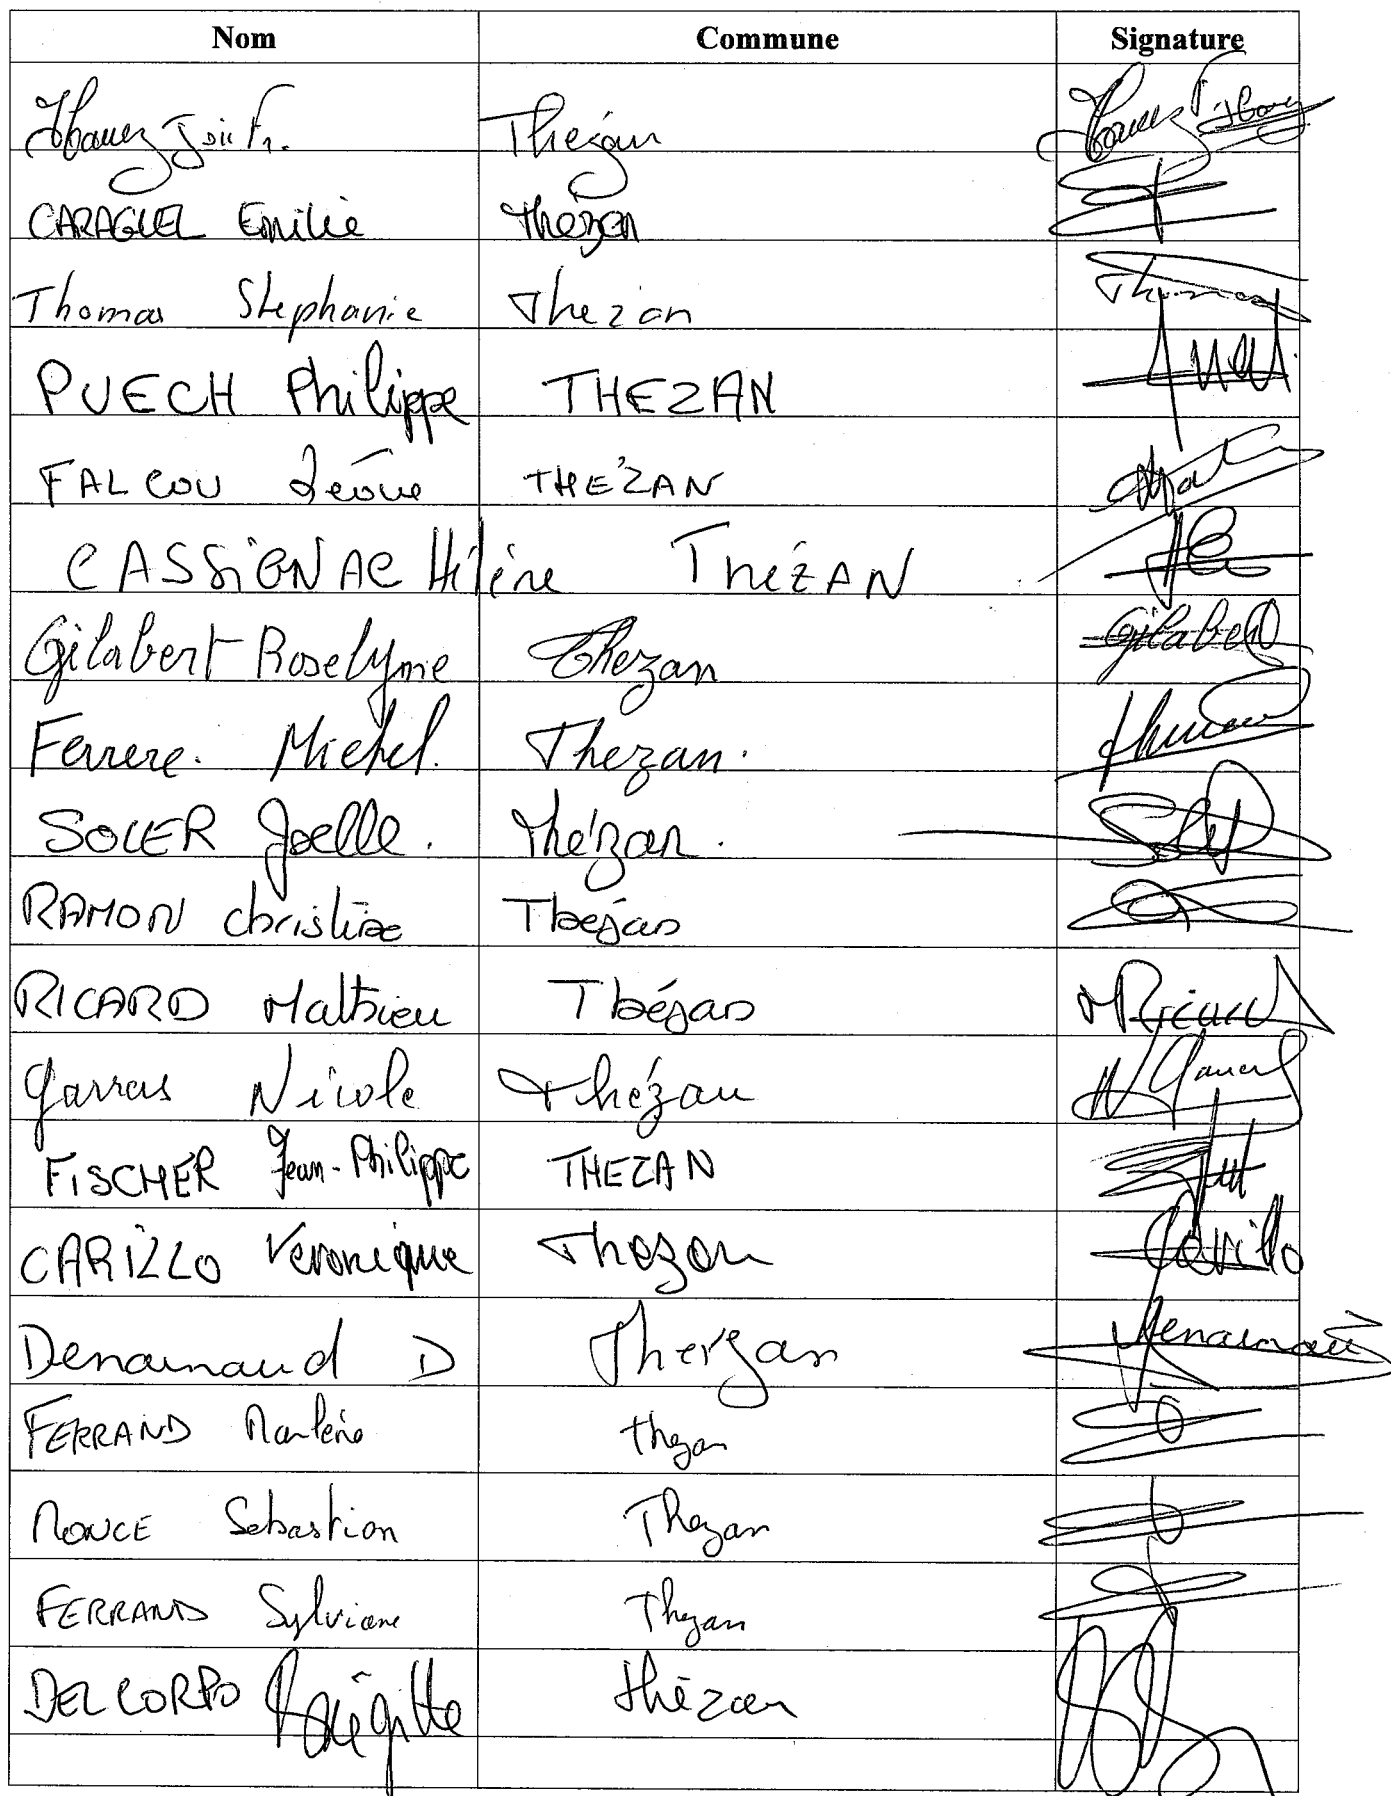 Nom Commune Signature
Ibanez Thézan
CARAGUEL Emilie Thézan
Thomas Stephanie Thezan Thomas
PUECH Philippe THEZAN
FALCOU THÉZAN
CASSiGNAC Hélène ThÉZAN
Gilabert Roselyne Thezan Gilabert
Ferrere. Michel. Thezan.
SOLER Joelle. Thézan. Soler
RAMON christine Thézan
RICARD Mathieu Thézan MRicard
Garras Nicole Thézan
FISCHER Jean-Philippe THEZAN
CARILLO Veronique Thezan Carillo
Denarnaud D Thezan Denarnaud
FERRAND Marlène thezan
PONCE Sebastian Thezan
FERRAND Sylviane Thezan
DELCORPO Brigitte thézan